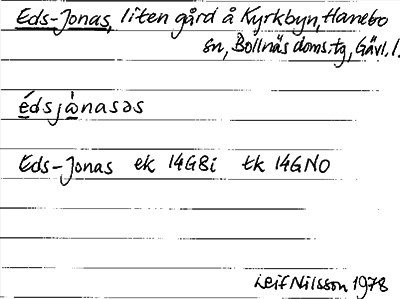 Eds-Jonas, liten gård å Kyrkbyn, Hanebo
sn, Bollnäs doms.tg, Gävl. l.
édsjὰnasəs
Eds-Jonas ek 14G8i tk 14GNO
Leif Nilsson 1978